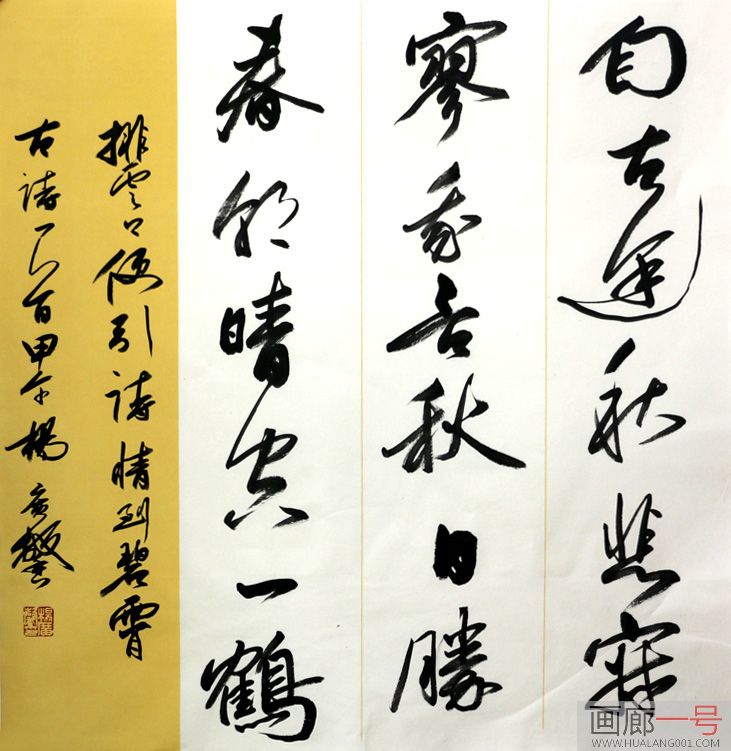 自古逢秋悲寂
寥我言秋日勝
春朝晴空一鶴
排雲上便引詩情到碧霄
古詩一首甲午楊廣馨
画廊一号
WWW.HUALANG001.COM